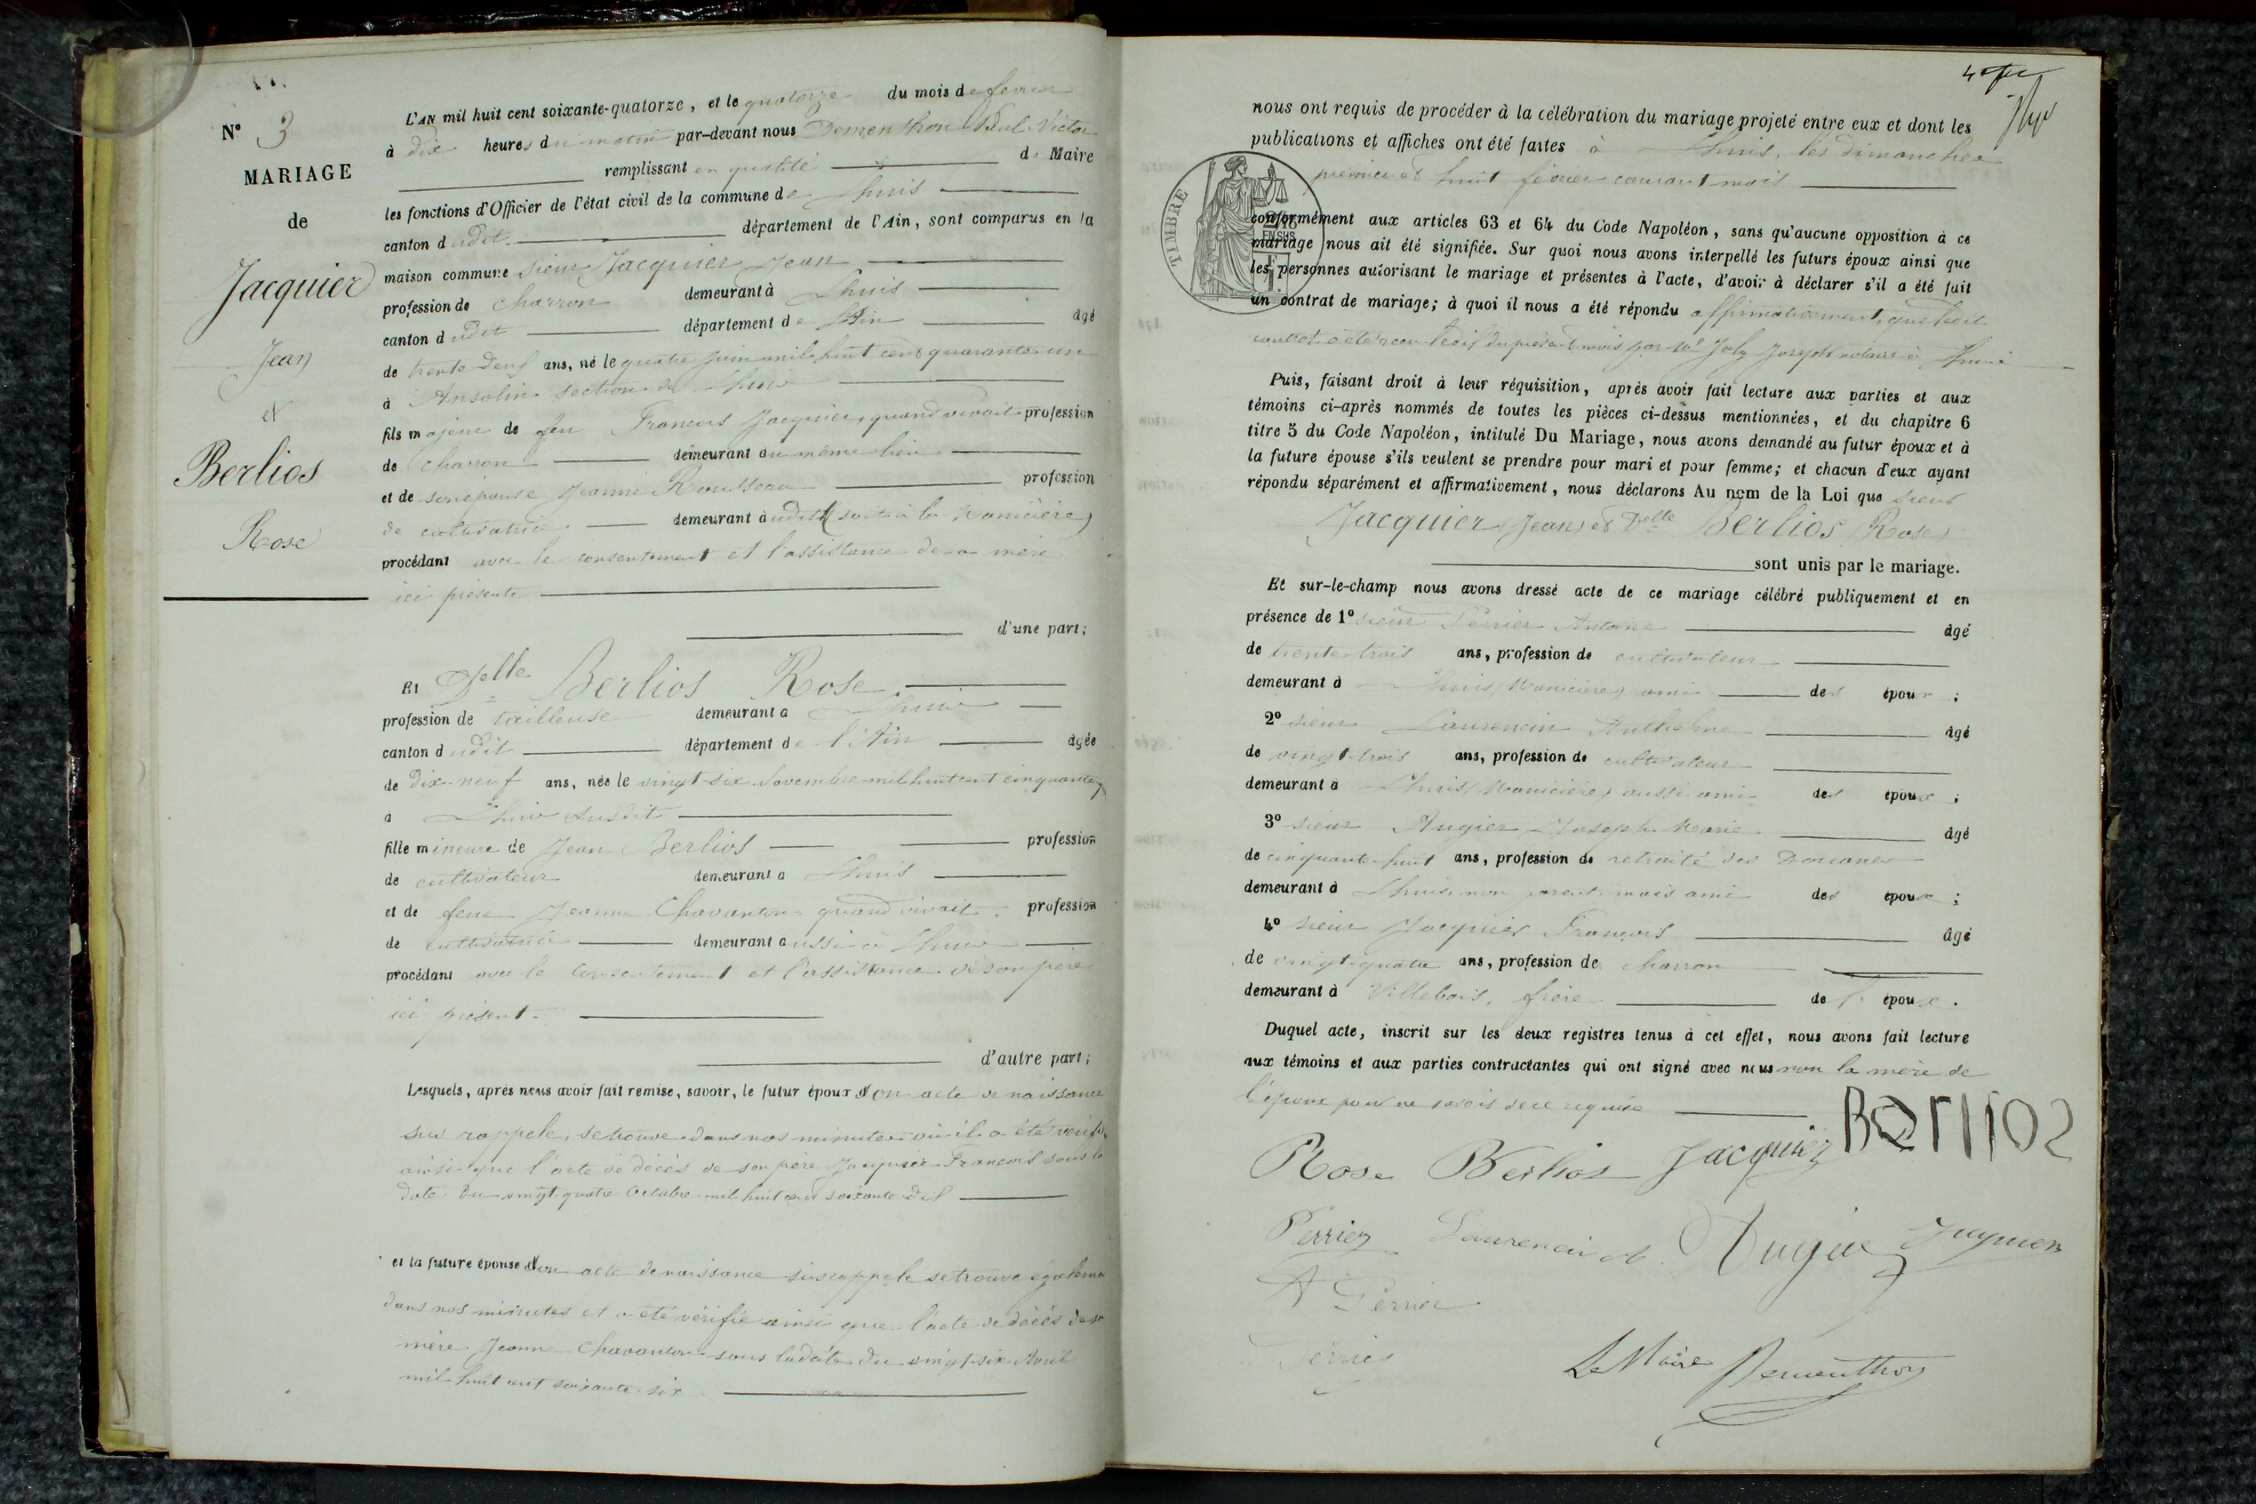 N° 3
MARIAGE
de
Jacquier
Jean
et
Berlios
Rose
L'AN mil huit cent soixante-quatorze, et le quatorze du mois de fevrier
à dix heures du matin par-devant nous Dementhon Paul Victor
remplissant en qualité de Maire
les fonctions d'Officier de l'état civil de la commune de Lhuis
canton dudit département de l'Ain, sont comparus en la
maison commune sieur Jacquier Jean
profession de charron demeurant à Lhuis
canton dudit département de l'Ain âgé
de trente deux ans, né le quatre juin mil huit cent quarante un
à Ansolin section de Lhuis
fils majeur de feu François Jacquier, quand vivait profession
de charron demeurant au même lieu
et de son épouse Jeanne Rousseau profession
de cultivatrice demeurant audit
procédant avec le consentement et l'assistance de sa mère
ici présente
d'une part;
Et Delle Berlios Rose
profession de tailleuse demeurant à Lhuis
canton dudit département de l'Ain âgée
de dix-neuf ans, née le vingt-six Novembre mil huit cent cinquante
à Lhuis susdit
fille mineure de Jean Berlios profession
de cultivateur demeurant à Lhuis
et de feue Jeanne Chavanton quand vivait profession
de cultivatrice demeurant aussi à Lhuis
procédant avec le consentement et l'assistance de son père
ici présent.
d'autre part;
Lesquels, après nous avoir fait remise, savoir, le futur époux son acte de naissance
sus rappelé, se trouve dans nos minutes où il a été vérifié
ainsi que l'acte de décès de son père Jacquier François sous la
date du vingt-quatre Octobre mil huit cent soixante dix
et la future épouse son acte de naissance susrappelé se trouve également
dans nos minutes et a été vérifié ainsi que l'acte de décès de sa
mère Jeanne Chavanton sous la date du vingt-six Avril
mil huit cent soixante six
nous ont requis de procéder à la célébration du mariage projeté entre eux et dont les
publications et affiches ont été faites à Lhuis, les dimanches
premier et huit février courant mois
TIMBRE
conformément aux articles 63 et 64 du Code Napoléon, sans qu'aucune opposition à ce
mariage nous ait été signifiée. Sur quoi nous avons interpellé les futurs époux ainsi que
les personnes autorisant le mariage et présentes à l'acte, d'avoir à déclarer s'il a été fait
un contrat de mariage; à quoi il nous a été répondu affirmativement, que ledit
contrat a été reçu du présent mois par Me Joly Joseph notaire à Lhuis
Puis, faisant droit à leur réquisition, après avoir fait lecture aux parties et aux
témoins ci-après nommés de toutes les pièces ci-dessus mentionnées, et du chapitre 6
titre 5 du Code Napoléon, intitulé Du Mariage, nous avons demandé au futur époux et à
la future épouse s'ils veulent se prendre pour mari et pour femme; et chacun d'eux ayant
répondu séparément et affirmativement, nous déclarons Au nom de la Loi que sieur
Jacquier (Jean) et Delle Berlios (Rose)
sont unis par le mariage.
Et sur-le-champ nous avons dressé acte de ce mariage célébré publiquement et en
présence de 1° sieur Perrier Antoine âgé
de trente-trois ans, profession de cultivateur
demeurant à Lhuis ami des époux;
2° sieur Laurencin Anthelme âgé
de vingt-trois ans, profession de cultivateur
demeurant à Lhuis aussi ami des époux;
3° sieur Augier Joseph Marie âgé
de cinquante-huit ans, profession de retraité des Douanes
demeurant à Lhuis, non parent mais ami des époux;
4° sieur Jacquier François âgé
de vingt-quatre ans, profession de charron
demeurant à Villebois, frère de l'époux.
Duquel acte, inscrit sur les deux registres tenus à cet effet, nous avons fait lecture
aux témoins et aux parties contractantes qui ont signé avec nous non la mère de
l'époux pour ne savoir de ce requise
Rose Berlios Jacquier Berlioz
Perrier Laurencin A. Augier Jacquier
A Perrier
Perrier
Le Maire Dementhon